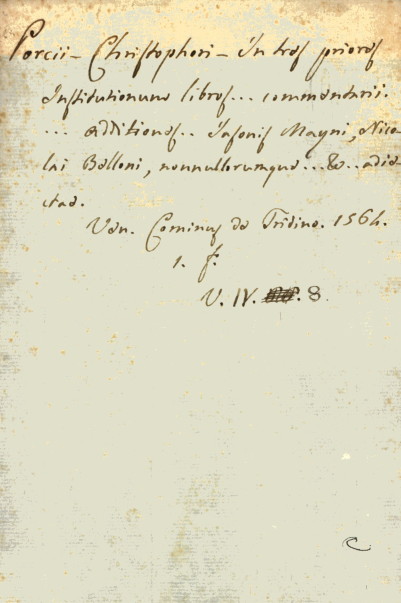 Porcii - Christophori - In tres priores
Institutionum libros... commentarii.
... additiones.. Jasonis Magni, Nico-
lai Belloni, nonnullorumque... &.. adie-
ctae.
Ven. Cominus de Tridino. 1564.
1. f.
V. IV. 8.
C